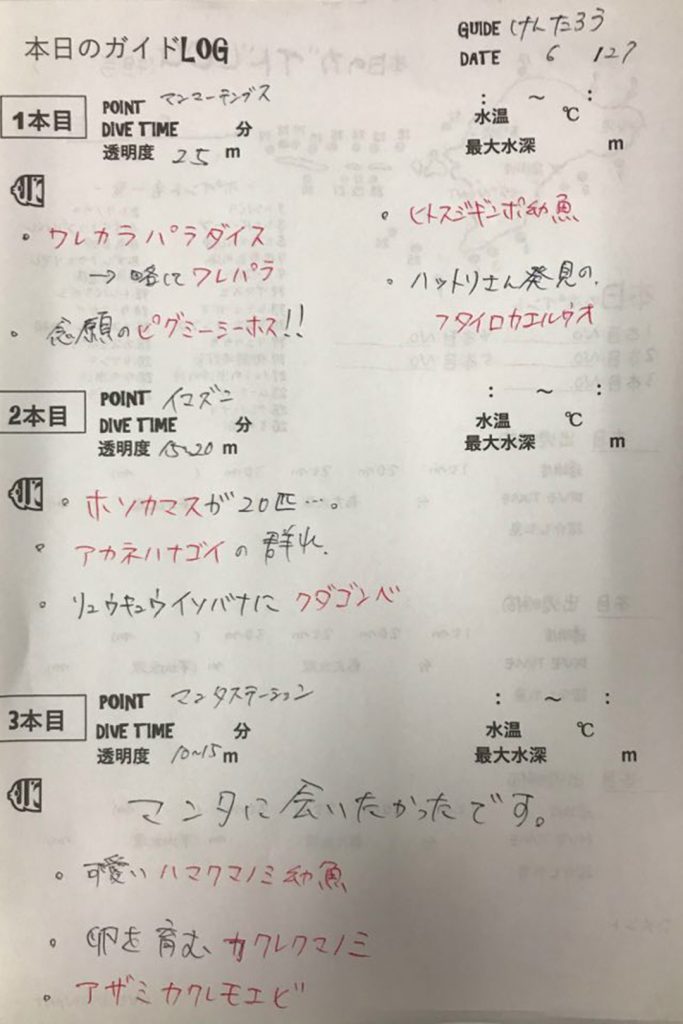 本日のガイドLOG
GUIDE けんたろう
DATE 6 / 27
1本目
POINT マンマーテングス
DIVE TIME 分
透明度 25 m
: ～ :
水温 ℃
最大水深 m
・ワレカラパラダイス
→略してワレパラ
・念願のピグミーシーホス!!
・ヒトスジギンポ幼魚
・ハットリさん発見の、
フタイロカエルウオ
2本目
POINT イマズニ
DIVE TIME 分
透明度 15~20 m
: ～ :
水温 ℃
最大水深 m
・ホソカマスが20匹…。
・アカネハナゴイの群れ、
・リュウキュウイソバナに クダゴンベ
3本目
POINT マンタステーション
DIVE TIME 分
透明度 10~15 m
: ～ :
水温 ℃
最大水深 m
マンタに会いたかったです。
・可愛いハマクマノミ幼魚
・卵を育む、カクレクマノミ
・アザミカクレモエビ